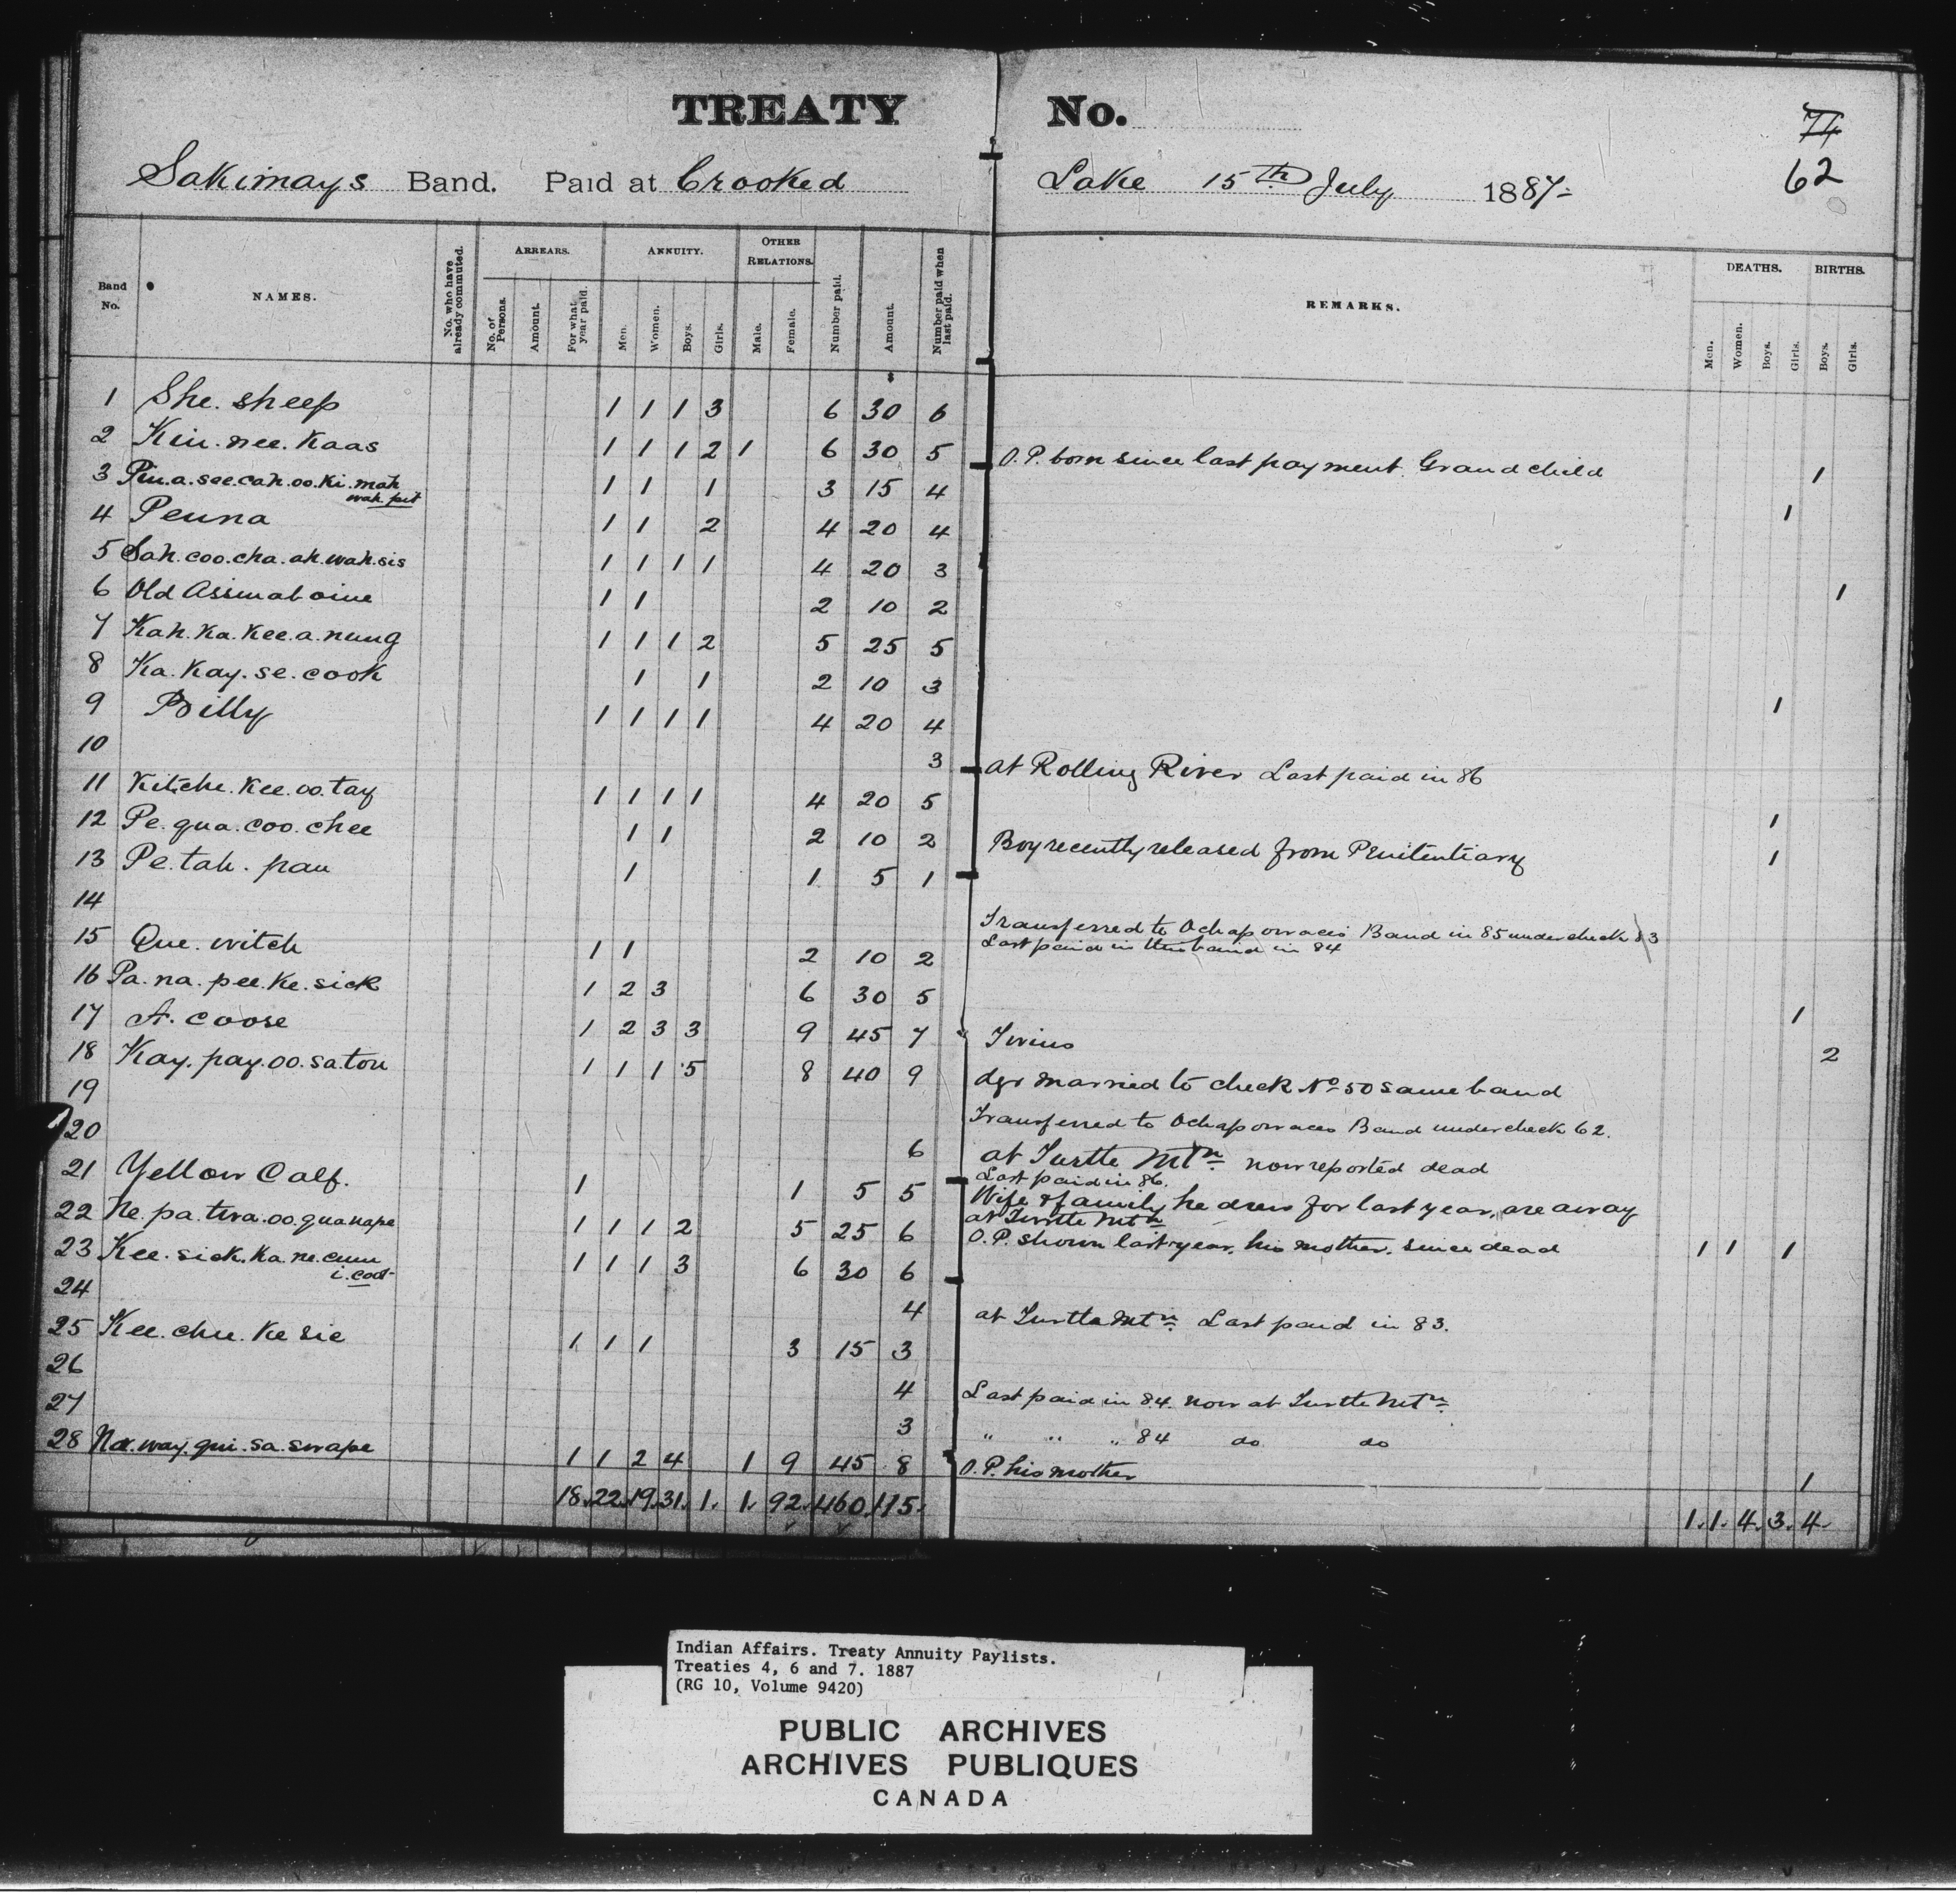 TREATY No.
74
62
Sakimays Band. Paid at Crooked Lake 15th July 1887
Band No. NAMES. No. who have already commuted. ARREARS. ANNUITY. OTHER RELATIONS. Number paid. Amount. Number paid when last paid. REMARKS. DEATHS. BIRTHS.
No. of Persons. Amount. For what year paid. Men. Women. Boys. Girls. Male. Female. Men. Women. Boys. Girls. Boys. Girls.
1 She. sheep 1 1 1 3 6 30 6
2 Kin. nee. Kaas 1 1 1 2 1 6 30 5 O.P. born since last payment. Grand child 1
3 Pin.a.see.cah.oo.ki.mah wah.pit 1 1 1 3 15 4 1
4 Penna 1 1 2 4 20 4
5 Sah.coo.cha.ah.wah.sis 1 1 1 1 4 20 3 1
6 Old Assinaboine 1 1 2 10 2
7 Kah.Ka.Kee.a.nung 1 1 1 2 5 25 5
8 Ka.Kay.se.cook 1 1 2 10 3 1
9 Billy 1 1 1 1 4 20 4
10 3 at Rolling River Last paid in 86
11 Kitche.Kee.oo.tay 1 1 1 1 4 20 5 1
12 Pe.qua.coo.chee 1 1 2 10 2 Boy recently released from Penitentiary 1
13 Pe.tah.pau 1 1 5 1
14 Transferred to Ochapowaces Band in 85 under check 83
Last paid in this band in 84
15 Que.witch 1 1 2 10 2
16 Pa.na.pee.Ke.sick 1 2 3 6 30 5 1
17 A.coose 1 2 3 3 9 45 7 Twins 2
18 Kay.pay.oo.saton 1 1 1 5 8 40 9 dgr married to check No 50 same band
19 Transferred to Ochapowaces Band under check 62.
20 6 at Turtle Mtn now reported dead
Last paid in 86.
21 Yellow Calf. 1 1 5 5 Wife & family he drew for last year, are away
at Turtle Mtn
22 Ne.pa.twa.oo.quanape 1 1 1 2 5 25 6 O.P. shown last year, his mother, since dead 1 1 1
23 Kee.sick.Ka.ne.cum i.coot 1 1 1 3 6 30 6
24 4 at Turtle Mtn Last paid in 83.
25 Kee.chee.Ke sie 1 1 1 3 15 3
26 4 Last paid in 84. now at Turtle Mtn
27 3 " " " 84 do do
28 Na.way.qui.sa.swape 1 1 2 4 1 9 45 8 O.P. his mother 1
18. 22. 19. 31. 1. 1. 92. 460. 115. 1. 1. 4. 3. 4.
Indian Affairs. Treaty Annuity Paylists.
Treaties 4, 6 and 7. 1887
(RG 10, Volume 9420)
PUBLIC ARCHIVES
ARCHIVES PUBLIQUES
CANADA